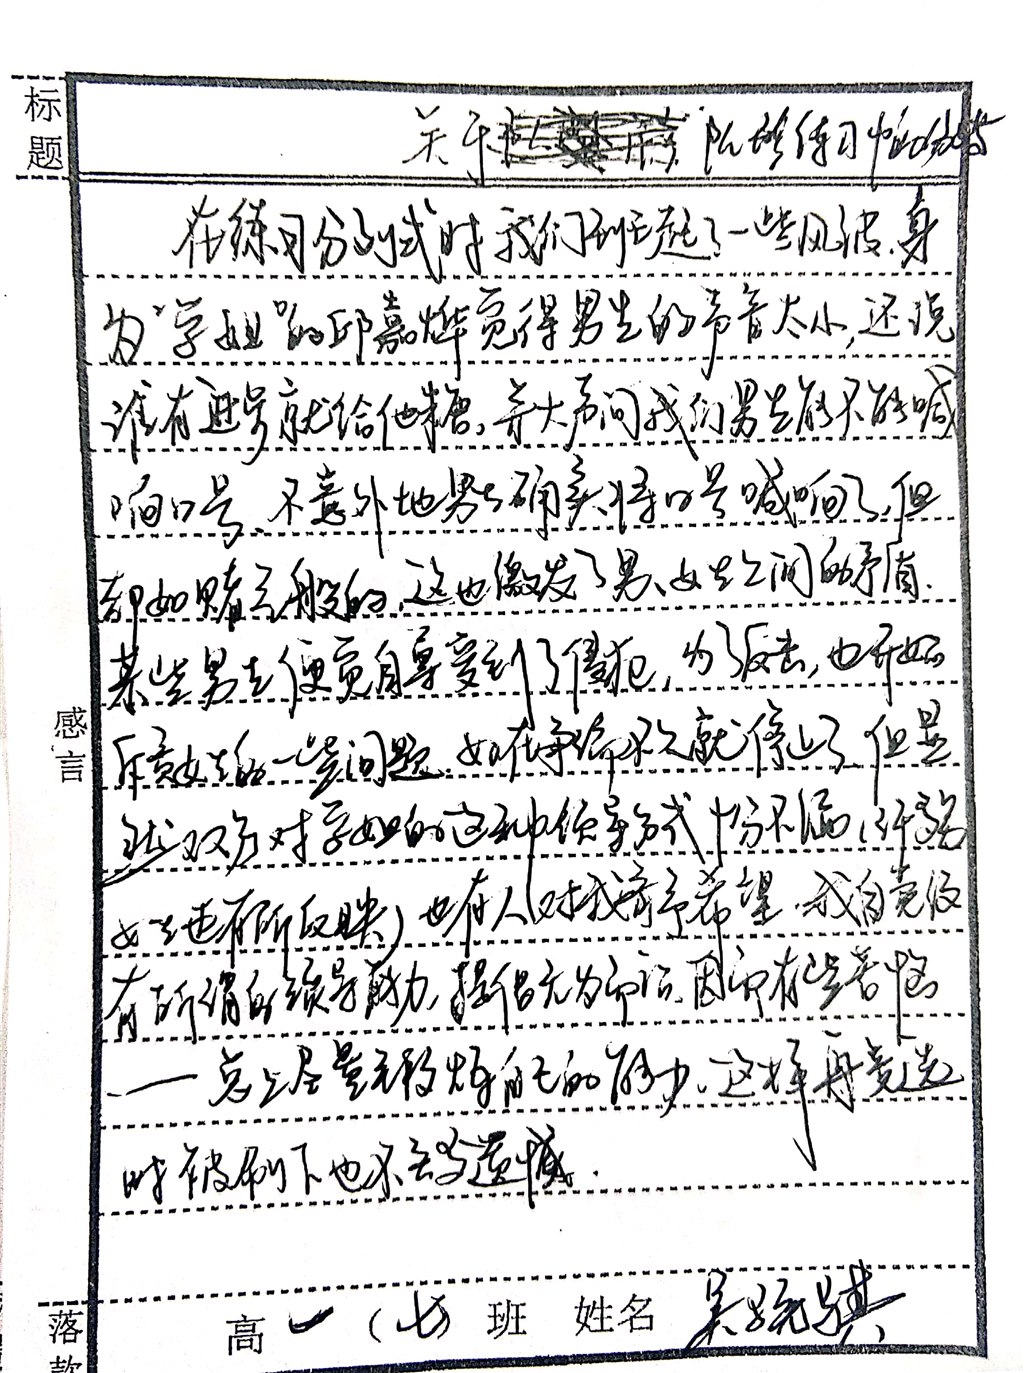 标题
关于 队形练习中的
在练习分列式时我们班起了一些风波,身
为"学姐"的邱嘉烨觉得男生的声音太小,还说
谁有迷号就给他糖,并大声问我们男生能不能喊
响口号、不意外地男生确实将口号喊响了,但
却如赌气般的,这也激发了男、女生之间的矛盾.
某些男生便觉自尊受到了侵犯,为了反击,也开始
斥责女生的一些问题. 争论不久就停止了 但显
然双方对学姐的这种领导方式十分不满,(许多
女生也有所反映)也有人对我寄予希望.我自觉没
有所谓的领导能力,提倡无为而治,因而有些苦恼
—总之尽量 自己的 ,这样再竞选
时被刷下也不会 遗憾.
感言
落款
高一(七)班 姓名 吴 骐